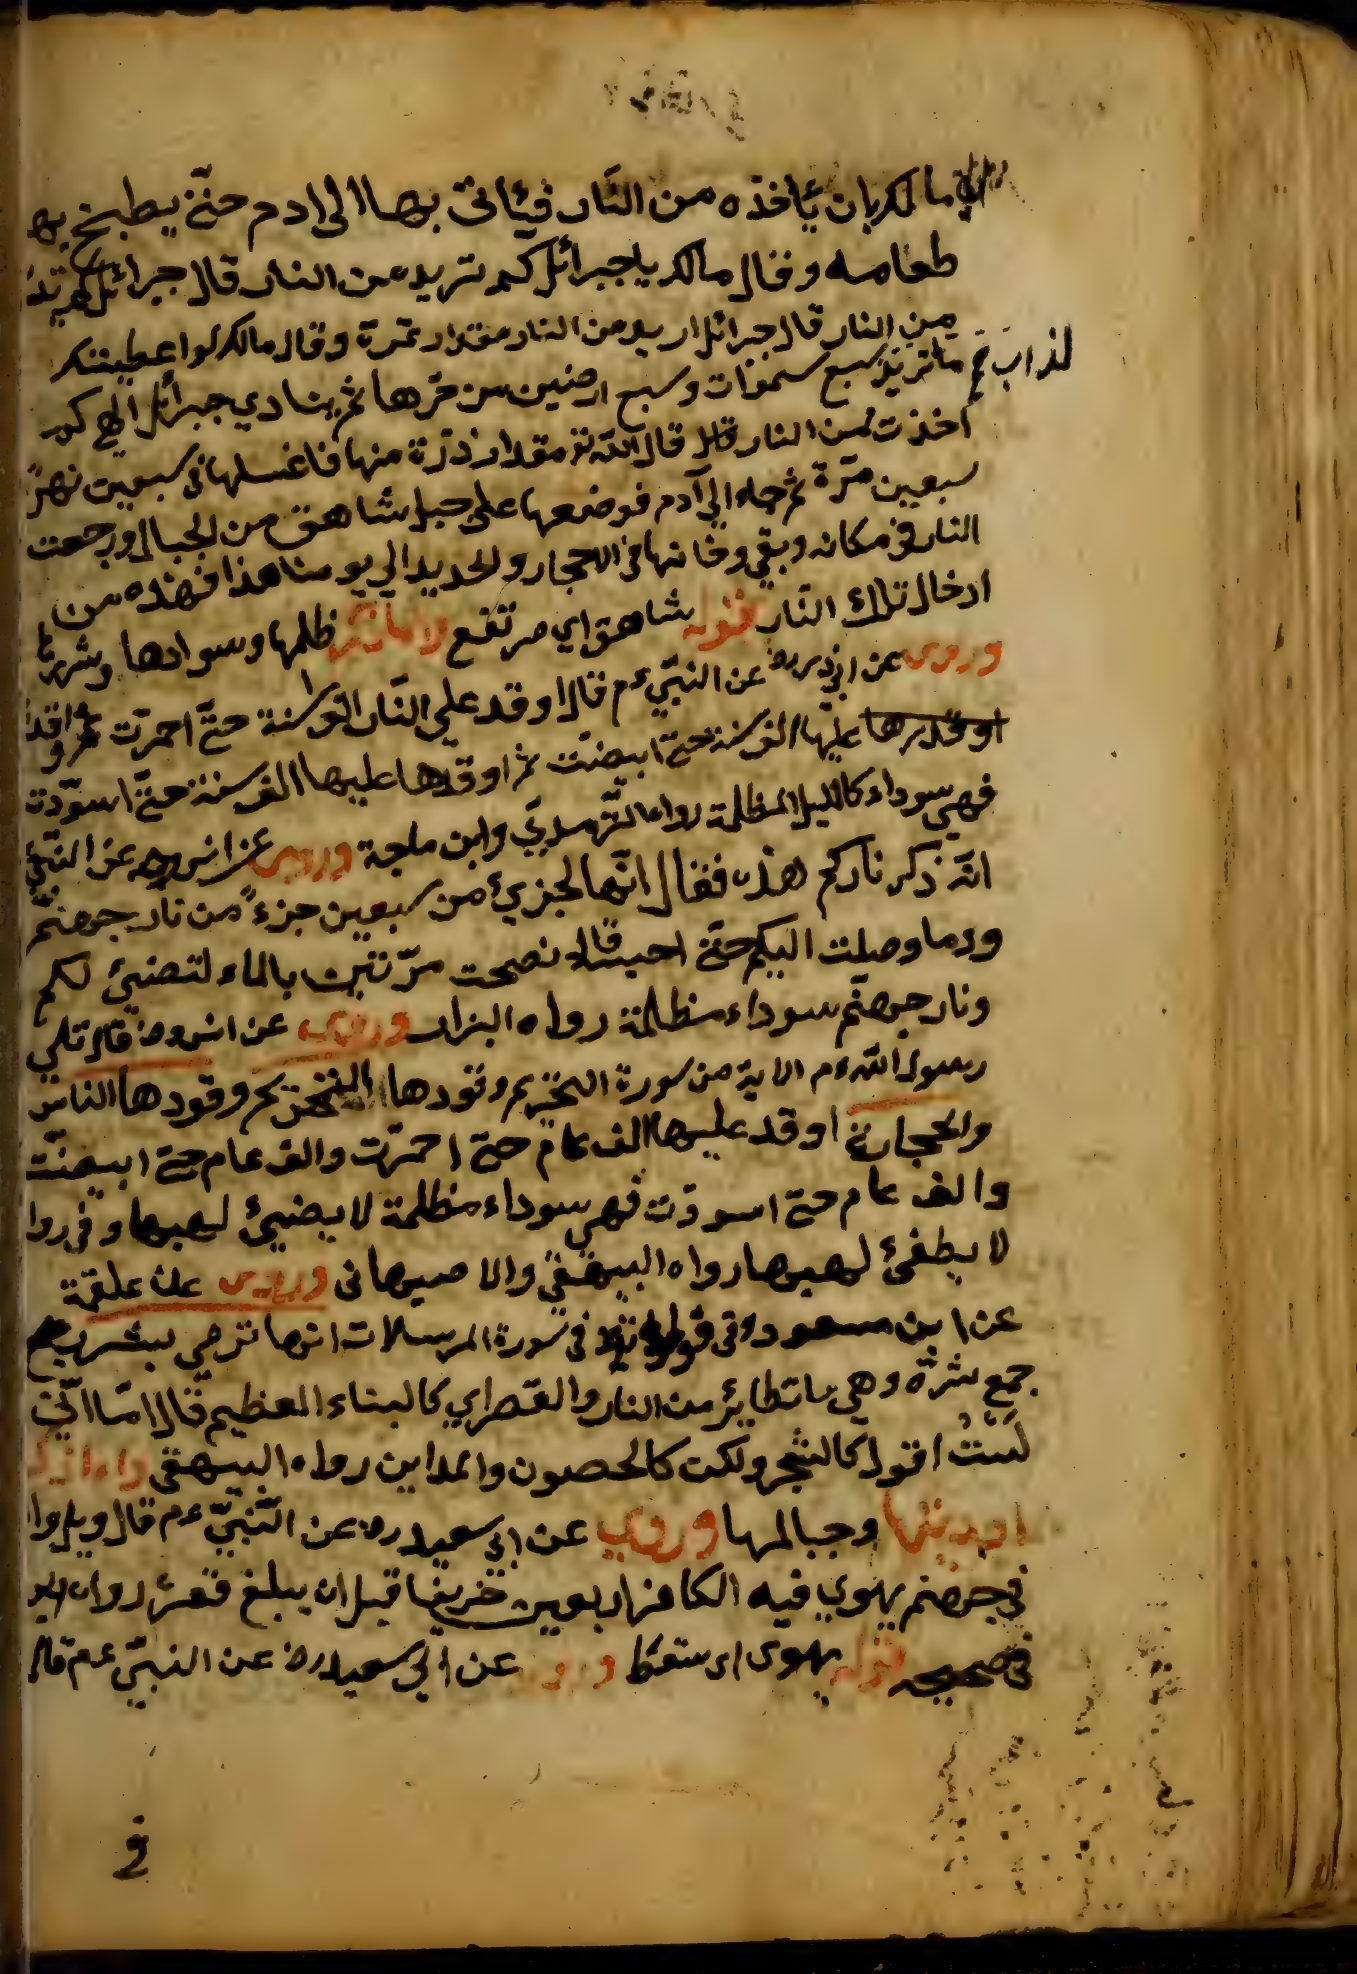 مالك بان ئاخذه من النّار فئاتى بها الى ادم حتّى يطبخ بها
طعامه وفقال مالك يا جبرائل كم تريد من النار قال جبرائل
من النار قال جبرائل اريد من النار مقدار تمرة وقال مالك لو اعطيتك
لذاب ما تريد سبع سموات وسبع ارضين من حرّها ثم ينادى جبرائل الهى كم
اخذت من النار قال الله تع مقدار ذرّة منها فاغسلها فى سبعين نهرً
سبعين مرّة ثم جاء الى آدم فوضعها على جبل شاهق من الجبال ورجعت
النار فى مكانه وبقى دخانها فى الاحجار والحديد الى يومنا هذا فهذه من
ادخال تلك النّار قوله شاهق اى مرتفع ظلمها وسوادها وشررها
وروى عن ابى عن النّبىّ عم قال اوقد على النّار الف سنة حتّى احمرّت ثم اوقد
عليها الف سنة حتى ابيضّت ثم اوقدها عليها الف سنة حتّى اسوّدت
فهى سوداء كالليل المظلمة رواه التّرمذىّ وابن ماجة وروى عن انس رضه عن النّبىّ
انّه ذكر ناركم هذه فقال انّها لجزئ من سبعين جزءً من نار جهنّم
وما وصلت اليكم حتّى نضحت مرّتين بالماء لتضئ لكم
ونار جهنّم سوداء مظلمة رواه البزار وروى عن انس رض قال تلى
رسول الله عم الاية من سورة التحريم وقودها وقودها الناس
والحجارة اوقد عليها الف عام حتى احمرّت والف عام حتى ابيضّت
والف عام حتى اسودّت فهى سوداء مظلمة لا يضئ لهبها وفى روا
لا يطفئ لهبها رواه البيهقىّ والاصبهانى وروى عن علقمة
عن ابن مسعود فى قوله تع فى سورة المرسلات انها ترمى بشرر
جمع شررة وهى ما تطاير من النار والقصر اى كالبناء العظيم قال امّا انّى
لَسْتُ اقول كالشجر ولكن كالحصون والمداين رواه البيهقى
اوديتها وجبالها وروى عن ابى سعيد رض عن النّبىّ عم قال ويل واد
فى جهنم يهوى فيه الكافر اربعين خريفا قبل ان يبلغ قعره رواه
فى صحيحه قوله يهوى اى سقط وروى عن ابى سعيد رض عن النبىّ عم قال
فى